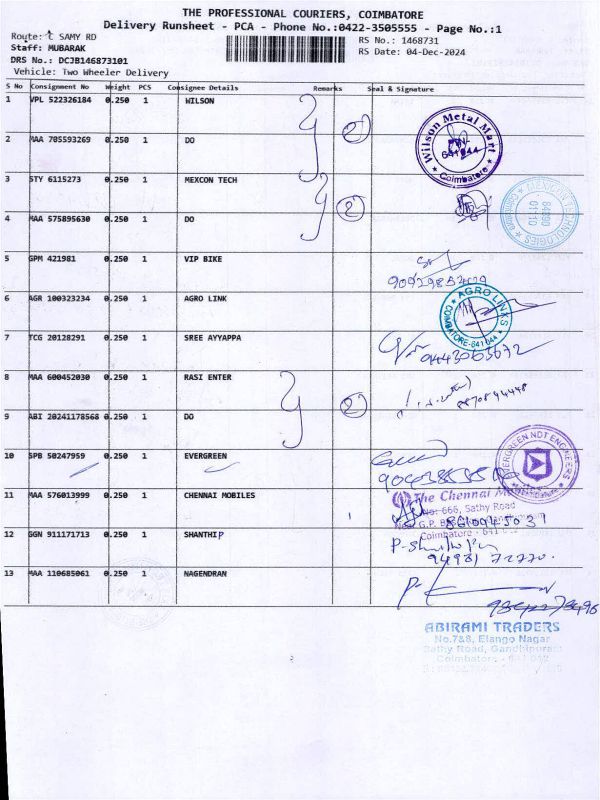 THE PROFESSIONAL COURIERS, COIMBATORE
Delivery Runsheet - PCA - Phone No.:0422-3505555 - Page No.:1
Route: SAMY RD
RS No.: 1468731
Staff: MUBARAK
RS Date: 04-Dec-2024
DRS No.: DCJB146873101
Vehicle: Two Wheeler Delivery
S No Consignment No Weight PCS Consignee Details Remarks Seal & Signature
1 VPL 522326184 0.250 1 WILSON
2 MAA 705593269 0.250 1 DO
2
Wilson Metal Mart
641 044
Coimbatore
3 STY 6115273 0.250 1 MEXCON TECH
4 MAA 575895630 0.250 1 DO
2
5 GPM 421981 0.250 1 VIP BIKE
6 AGR 100323234 0.250 1 AGRO LINK
AGRO LINKS
COIMBATORE-641 044
7 TCG 20128291 0.250 1 SREE AYYAPPA
9443063672
8 MAA 600452030 0.250 1 RASI ENTER
2
9 ABI 20241178568 0.250 1 DO
10 SPB 50247959 0.250 1 EVERGREEN
EVERGREEN NDT ENGINEERS
11 MAA 576013999 0.250 1 CHENNAI MOBILES
The Chennai
No: 666, Sathy Road
G.P.
Coimbatore - 641
12 GGN 911171713 0.250 1 SHANTHIP
94981 72770.
13 MAA 110685061 0.250 1 NAGENDRAN
ABIRAMI TRADERS
No.7&8, Elango Nagar
Sathy Road, Gandhipuram
Coimbatore - 641 012